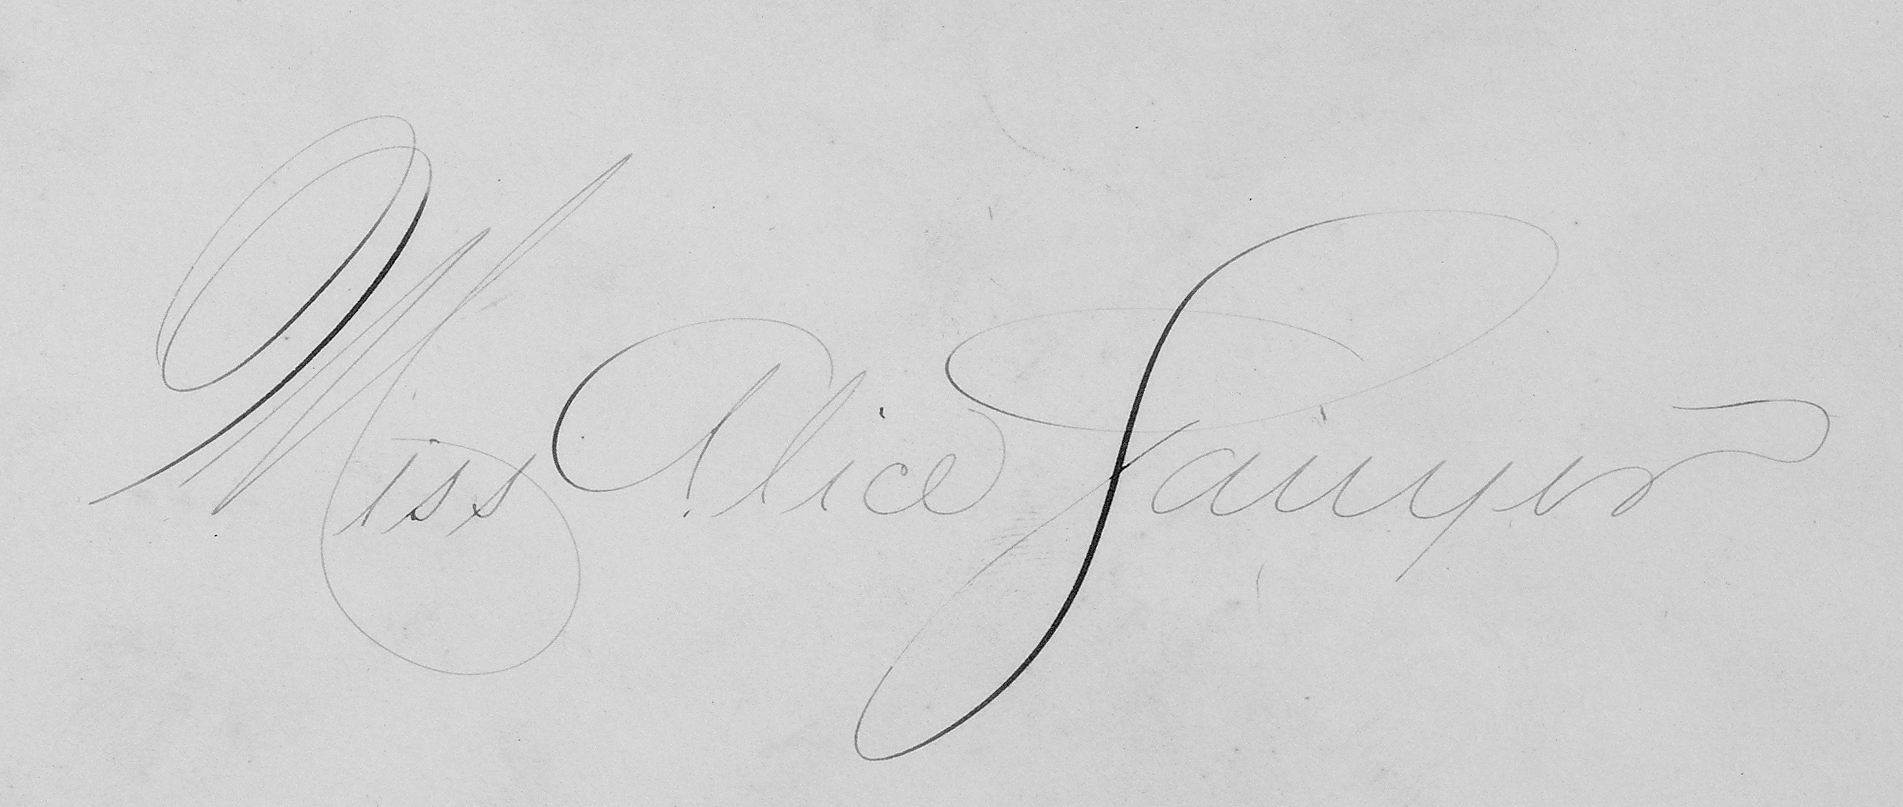 Miss Alice Sawyer